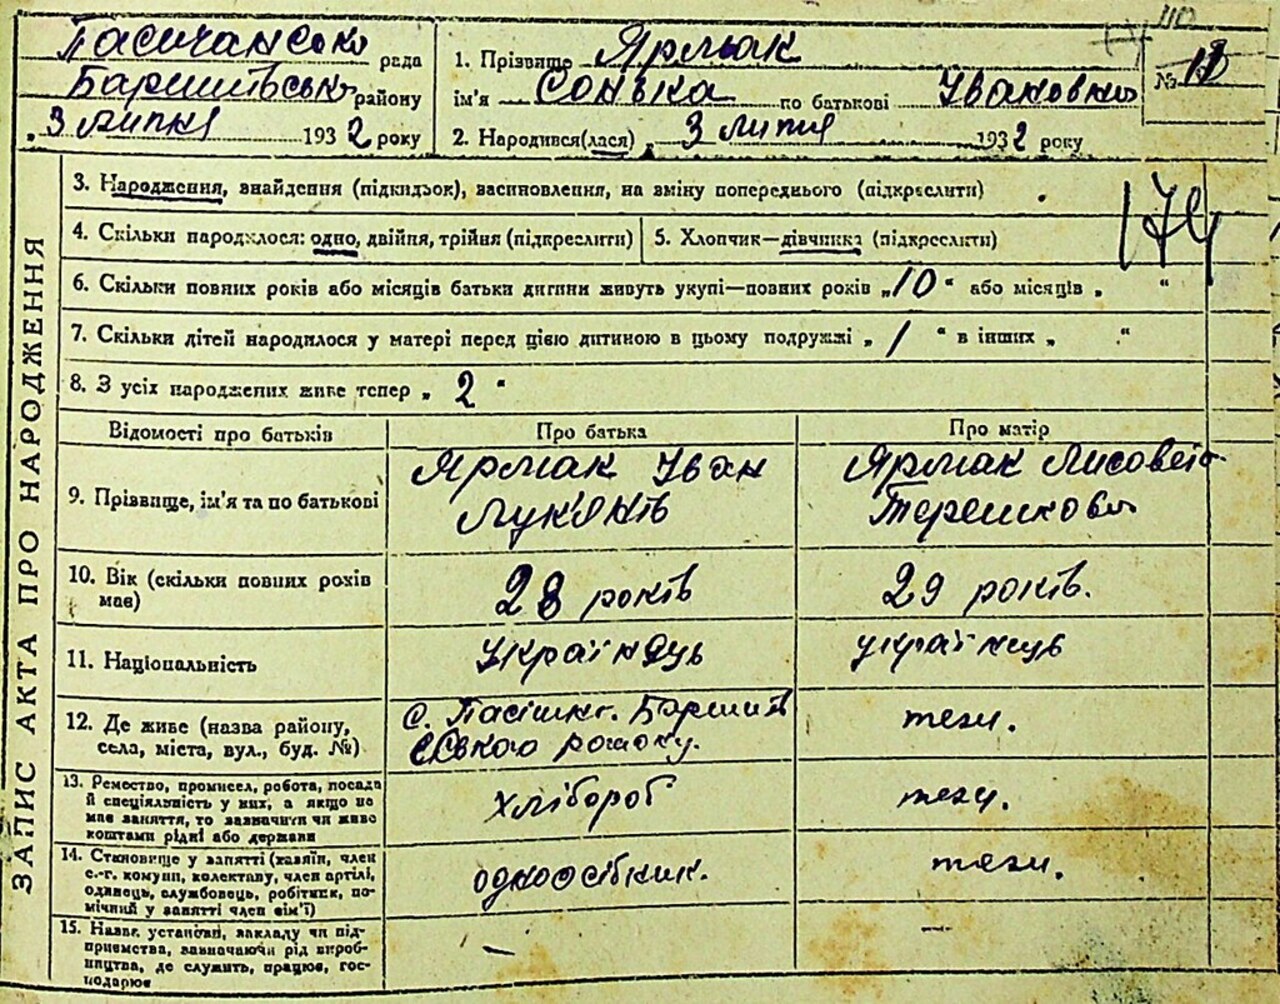 Пасічанська рада
Баришівського району
„3 липня 1932 року
1. Прізвище Ярмак
ім'я Сонька по батькові Ивановна
2. Народився(лася) 3 липня 1932 року
№ 18
ЗАПИС АКТА ПРО НАРОДЖЕННЯ
3. Народження, знайдення (підкидьок), васиновлення, на зміну попереднього (підкреслити)
174
4. Скільки народилося: одно, двійня, трійня (підкреслити)
5. Хлопчик—дівчинка (підкреслити)
6. Скільки повних років або місяців батьки дитини живуть укупі—повних років „10“ або місяців „ “
7. Скільки дітей народилося у матері перед цією дитиною в цьому подружжі „ 1 “ в інших „ “
8. З усіх народжених живе тепер „ 2 “
Відомості про батьків
Про батька
Про матір
9. Прізвище, ім'я та по батькові
Ярмак Иван
Лукянів
Ярмак Лисовета
Терешкова
10. Вік (скільки повних років
має)
28 років
29 років.
11. Національність
українець
українець
12. Де живе (назва району,
села, міста, вул., буд. №)
с. Пасішки. Баришів
ського району.
тези.
13. Ремество, промисел, робота, посада
й спеціяльність у них, а якщо не
має заняття, то зазначити чи живе
коштами рідні або держави
хлібороб
тези.
14. Становище у занятті (хазяїн, член
с.-г. комуни, колективу, член артілі,
одинець, службовець, робітник, по-
мічний у занятті член сім'ї)
одноосібник.
тези.
15. Назва установи, закладу чи під-
приємства, зазначаючи рід вироб-
ництва, де служить, працює, гос-
подарює
—
—